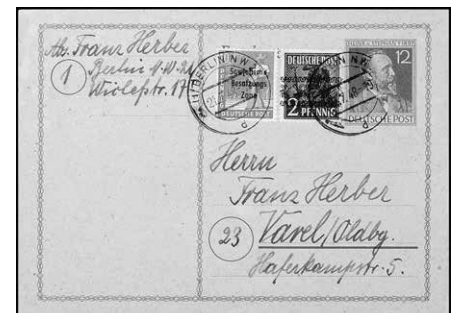 Abs. Franz Herber
Berlin N.W. 21
1
Wiclefstr. 17
BERLIN NW
Sowjetische
Besatzungs
Zone
DEUTSCHE POST
d
DEUTSCHE POST
2 PFENNIG
d
12
DEUTSCHE POST
Herrn
Franz Herber
23 Varel/Oldbg.
Haferkampstr. 5.